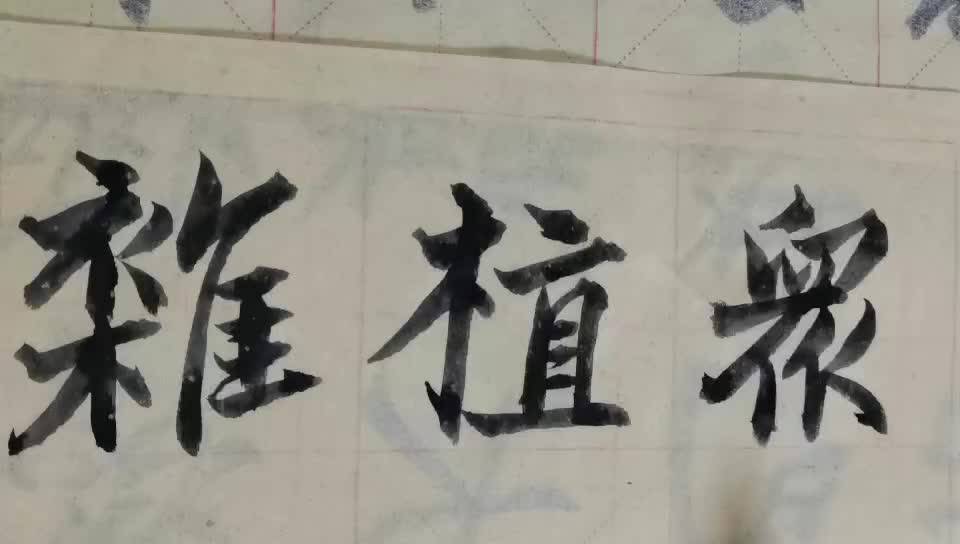 雜植衆